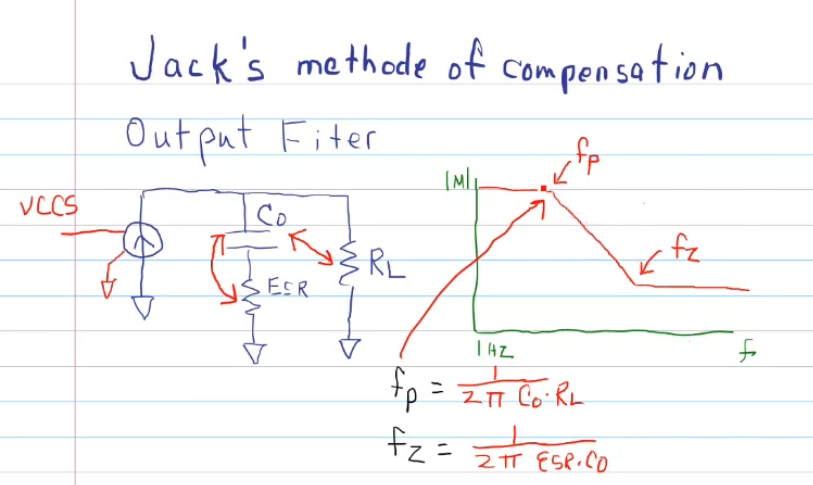 Jack's methode of compensation
Output Fiter
VCCS
Co
ESR
RL
|M|
fp
fz
1 Hz
f
fp = 1 / 2π Co·RL
fz = 1 / 2π ESR·Co